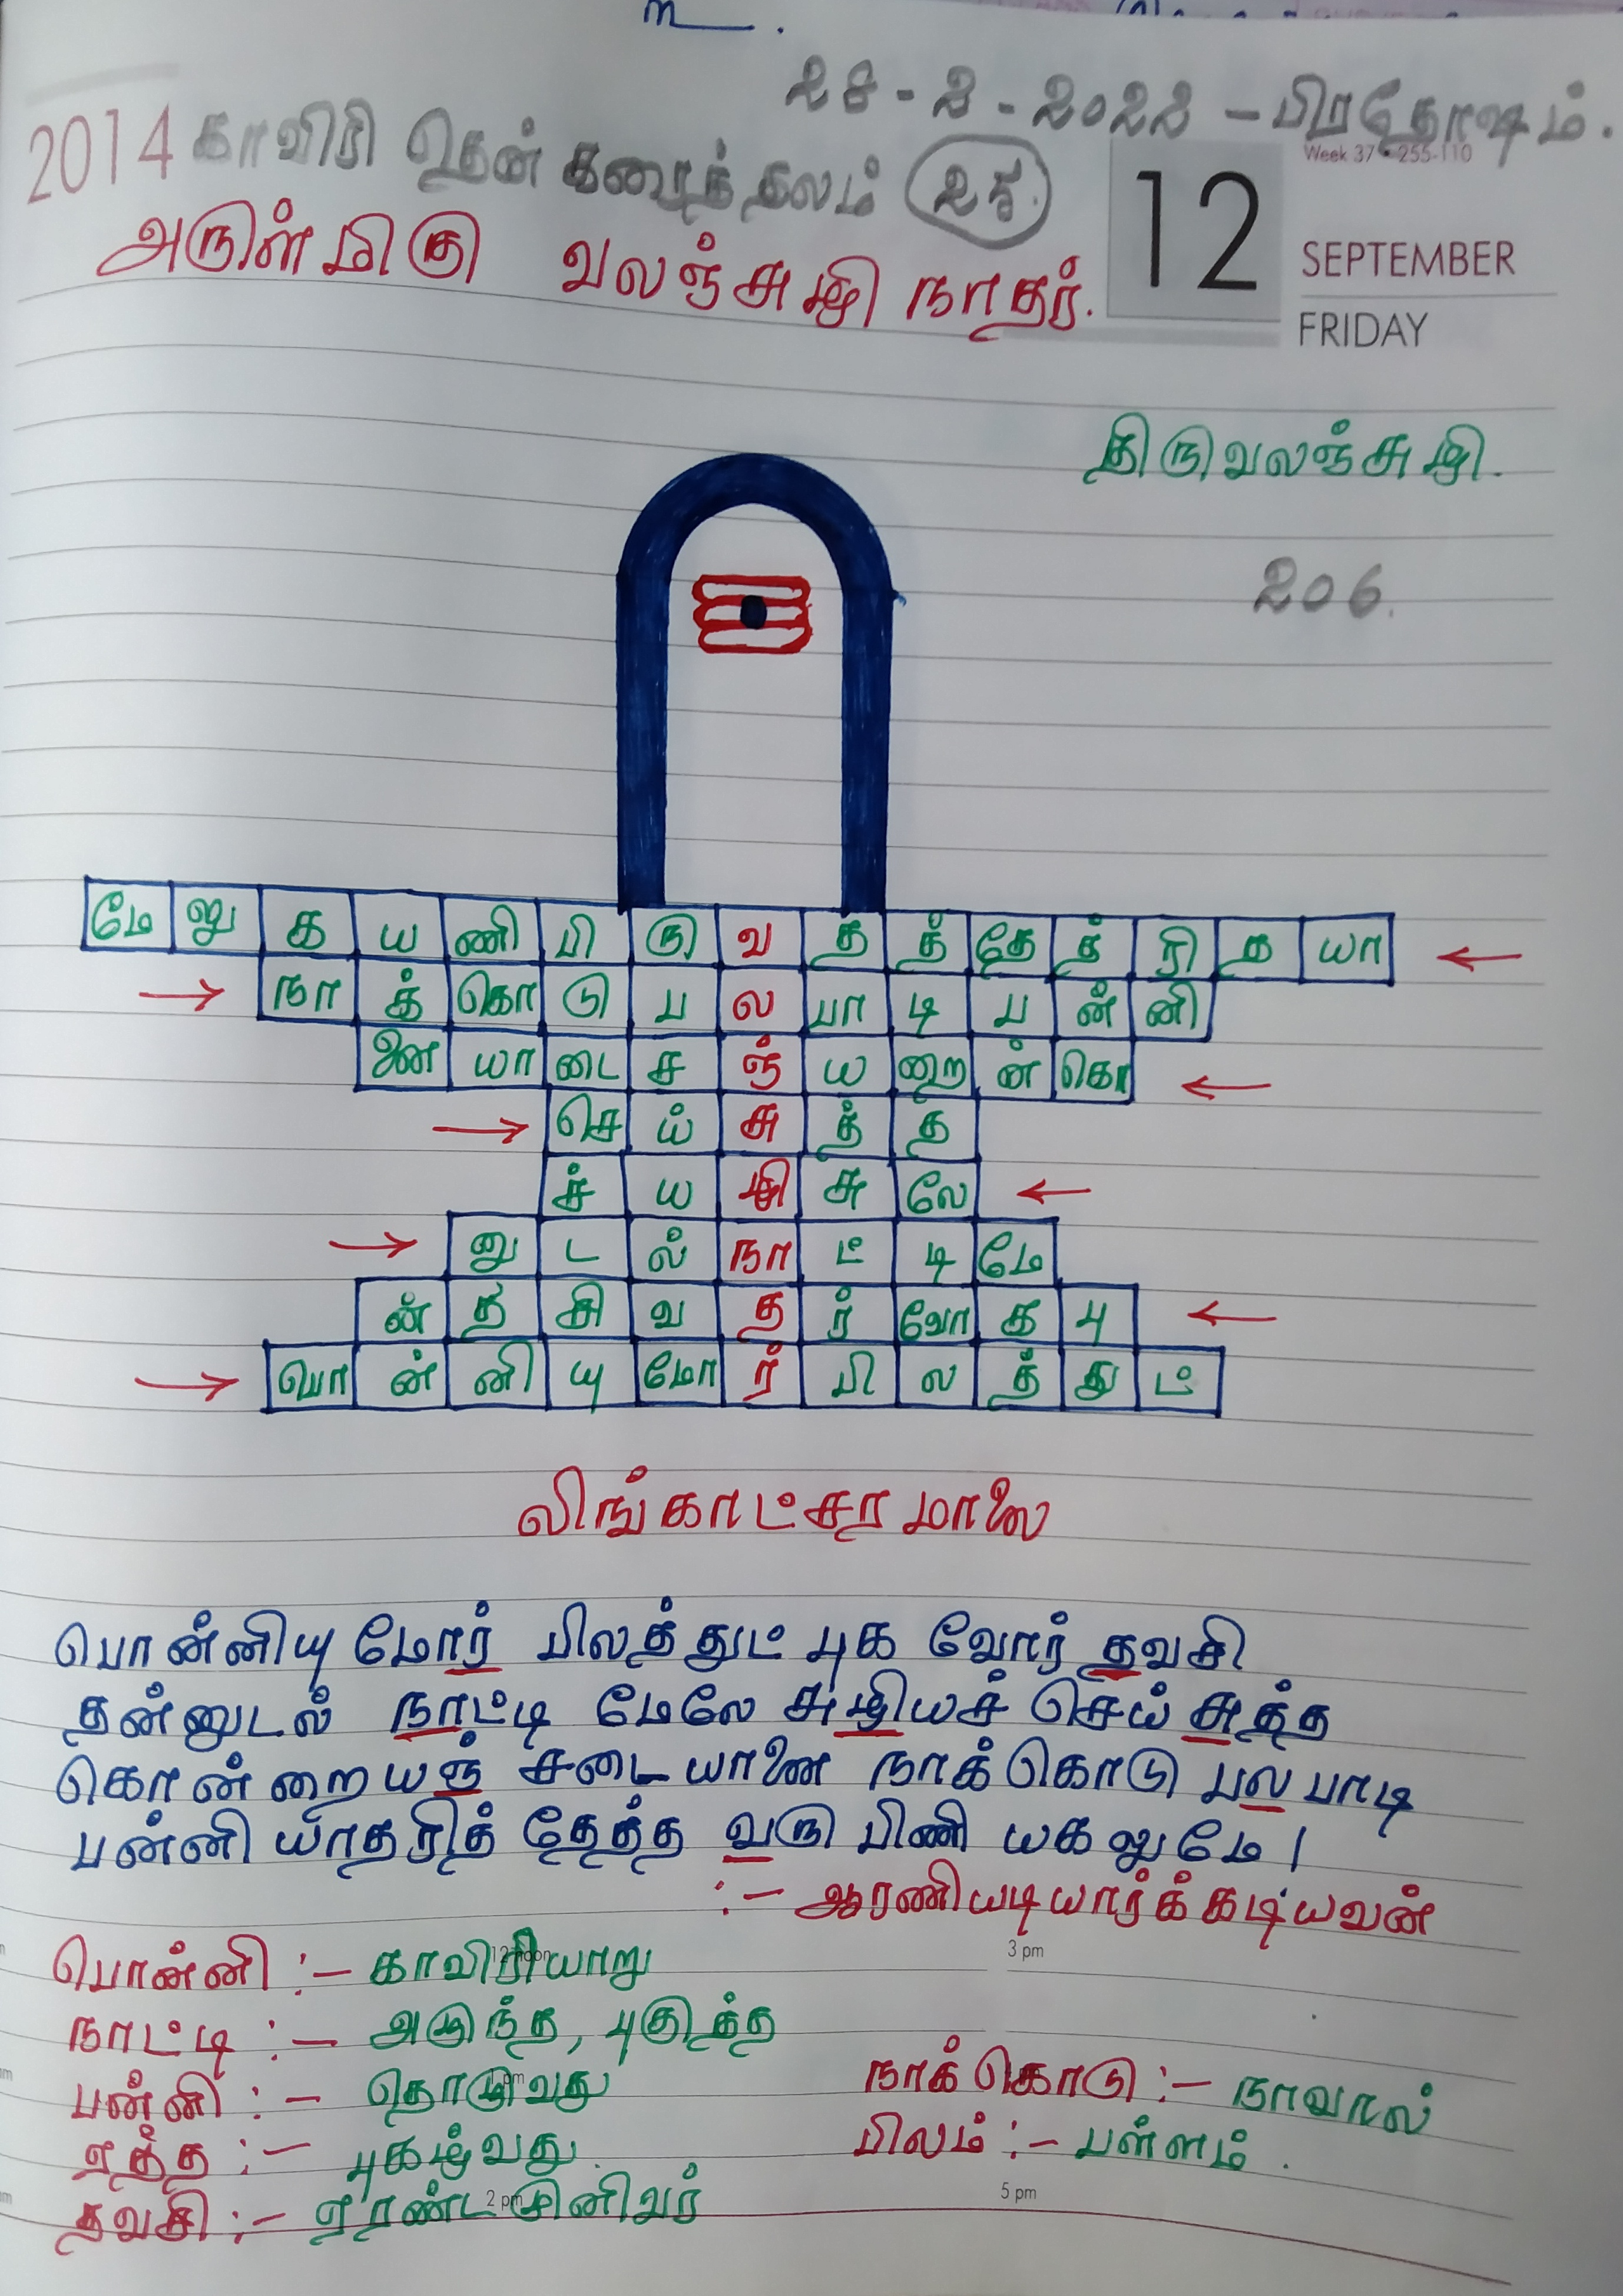 ௨௪-௨-௨௦௨௨ - பிரதோஷம்.
2014 காவிரி தென் கரைத் தலம் ௨௫.
Week 37 • 255-110
12
அருள்மிகு வலஞ்சுழி நாதர்.
SEPTEMBER
FRIDAY
திருவலஞ்சுழி.
௨௦௬.
மே லு க ய ணி பி ரு வ த த் தே த் ரி த யா
நா க் கொ டு ப ல பா டி ப ன் னி
னை யா டை ச ஞ் ய றை ன் கொ
செ ய் சு த் த
ச் ய ழி சு லே
னு ட ல் நா ட் டி மே
ன் த சி வ த ர் வோ க பு
பொ ன் னி யு மோ ர் பி ல த் து ட்
லிங்காட்சர மாலை
பொன்னியு மோர் பிலத்துட் புக வோர் தவசி
தன்னுடல் நாட்டி மேலே சுழியச் செய் சுத்த
கொன்றையஞ் சடையானை நாக்கொடு பல பாடி
பன்னி யாதரித் தேத்த வரு பிணி யகலுமே।
:- ஆரணியடியார்க்கடியவன்
பொன்னி :- காவிரியாறு
12 noon
3 pm
நாட்டி :- அருந்த, புகுத்த
பன்னி :- தொழுவது
நாக்கொடு :- நாவால்
ஏத்த :- புகழ்வது.
பிலம் :- பள்ளம்.
தவசி :- ஏரண்ட முனிவர்
2 pm
5 pm